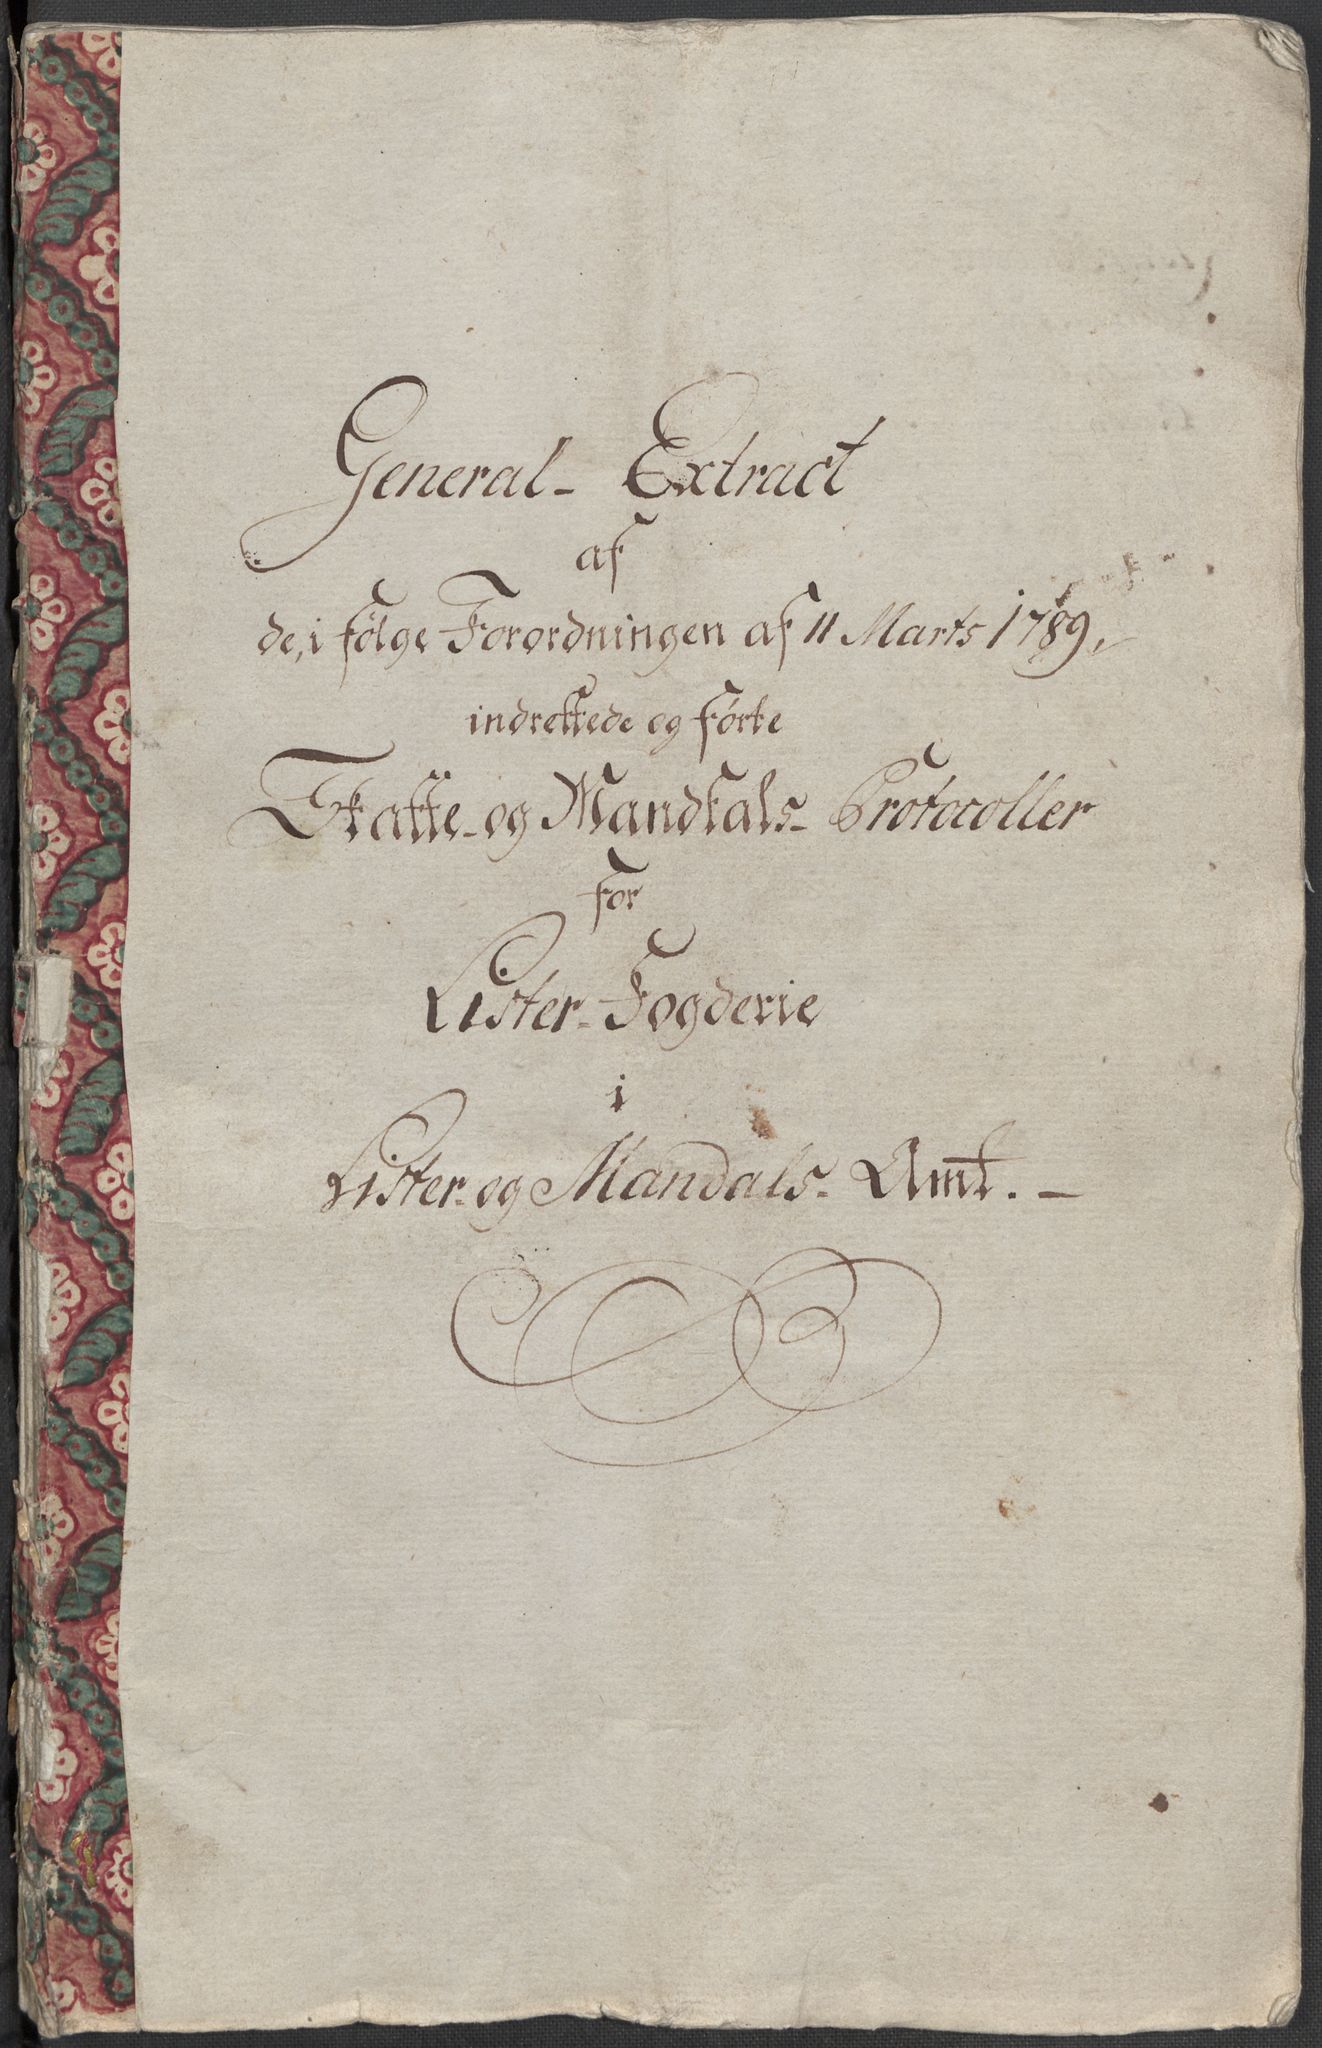 General- Extract
af
de, i følge Forordningen af 11 Marts 1789,
indrettede og førte
Skatte- og Mandtals- Protocoller
for
Lister- Fogderie
i
Lister- og Mandals- Amt. -